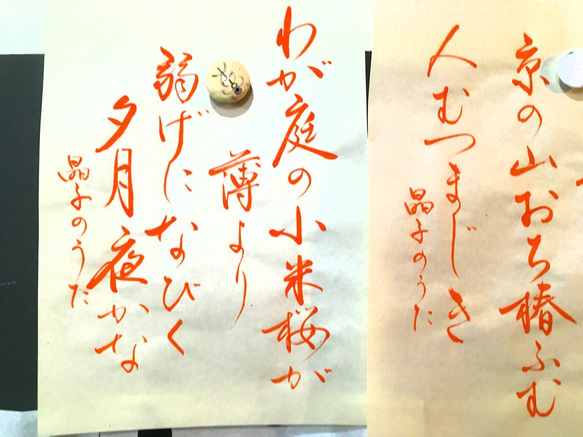 京の山おち椿ふむ
人むつまじき
晶子のうた
わが庭の小米桜が
薄より
弱げになびく
夕月夜かな
晶子のうた